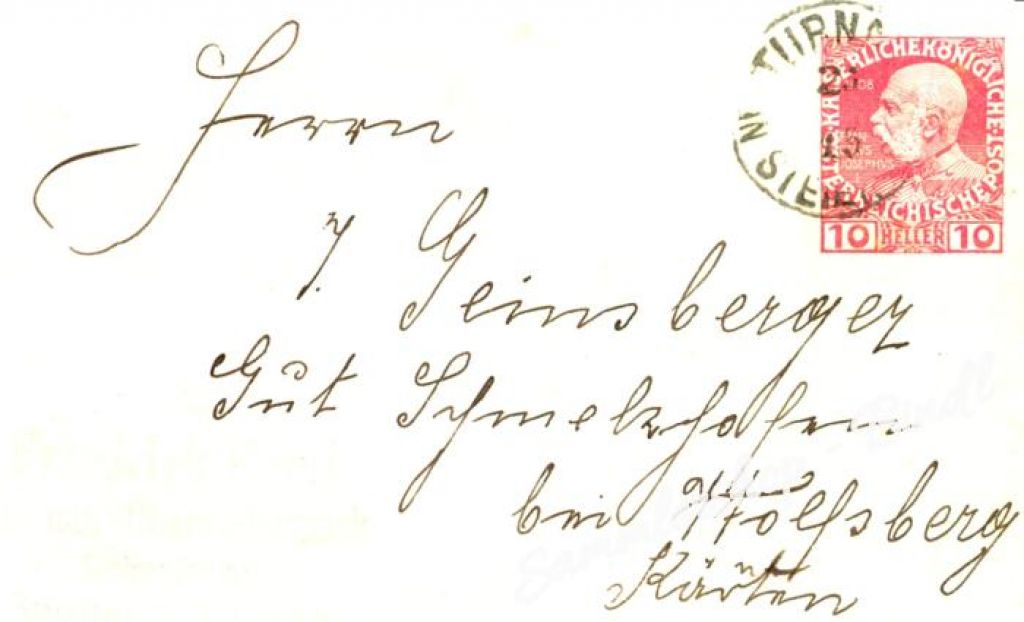 TURNA
IN STEIER
25
15
KAISERLICHEKÖNIGLICHE
ÖSTERREICHISCHE POST
JOSEPHVS
10 HELLER 10
Herrn
J. Geinsberger
Gut Schmelzhofen
bei Wolfsberg
Kärnten